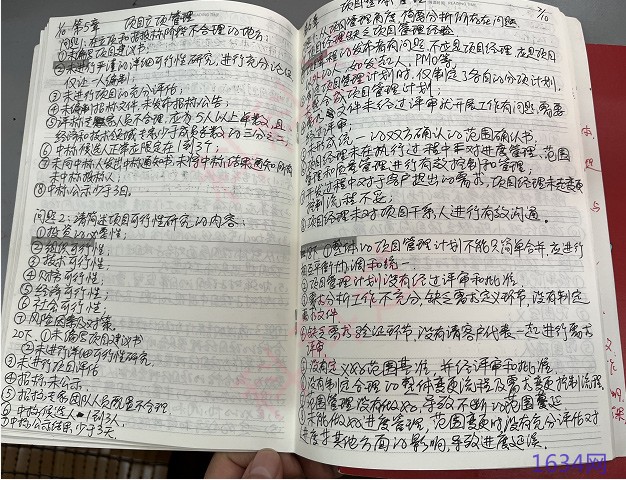 1/10 第5章 项目立项管理
问题1: 在立项和招投标阶段不合理的地方;
①未编写项目建议书.
②未进行详细的详细可行性研究, 进行充分论证
仅让一人编制;
③未进行项目的充分评估;
④未编制招标文件, 未发布招标公告;
⑤评标专家总人员不合理, 应为5人以上单数, 且
经济和技术领域专家少于成员总数的三分之二;
⑥中标候选人正常应限定在1到3个;
⑦未向中标人发出中标通知书, 未将中标结果通知所有
未中标投标人;
⑧中标公示少于3日。
问题2: 请简述项目可行性研究的内容:
①投资的必要性;
②组织可行性;
③技术可行性;
④财务可行性;
⑤经济可行性;
⑥社会可行性;
⑦风险因素及对策.
20下. ①未编写项目建议书
②未进行详细可行性研究.
③未进行项目评估
④招标未公示
⑤招投标专家团队人员配置不合理
⑥中标候选人1到3人,
⑦中标公示结果少于3天.
3/10
整体管理
项目管理角度, 简要分析可能存在问题
项目经理缺乏项目管理经验
发布者有问题, 不应是项目经理, 应是项目
以外的人, 如发起人, PMO等.
项目管理计划时, 仅制定了各自的分项计划,
项目管理计划;
文件未经过评审就开展工作有问题, 需要
过评审
未形成统一的双方确认的范围确认书,
项目经理未在执行过程中未对进度管理、范围
管理和质量管理进行有效控制和管理;
开发过程中对于客户提出的需求, 项目经理未走变更
控制流程不妥;
项目经理未对项目干系人进行有效沟通。
①整体的项目管理计划不能只简单合并, 应进行
相互平衡协调和统一.
②项目管理计划没有经过评审和批准.
③需求分析工作不充分, 缺乏需求定义环节, 没有制定
需求文件
④缺乏需求验证环节, 没有请客户代表一起进行需求
评审
⑤没有定义好范围基准, 并经评审和批准
⑥没有制定合理的整体变更流程及需求变更控制流程
范围管理没有做好, 导致不断的范围蔓延
不能做好进度管理, 范围变更时, 没有充分评估对
进度等其他方面的影响, 导致进度延误.
1634网